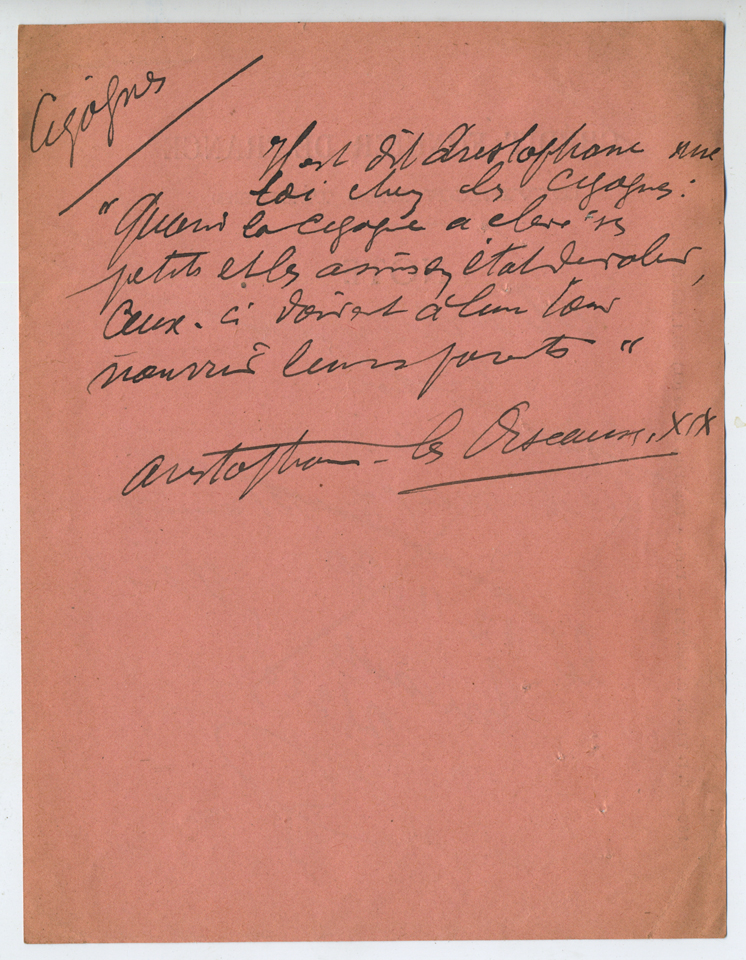 Cigognes
Il est dit Aristophane une
loi chez les cigognes :
"Quand la cigogne a élevé ses
petits et les a mis en état de voler,
ceux-ci doivent à leur tour
nourrir leurs parents "
Aristophane - les Oiseaux. XIX